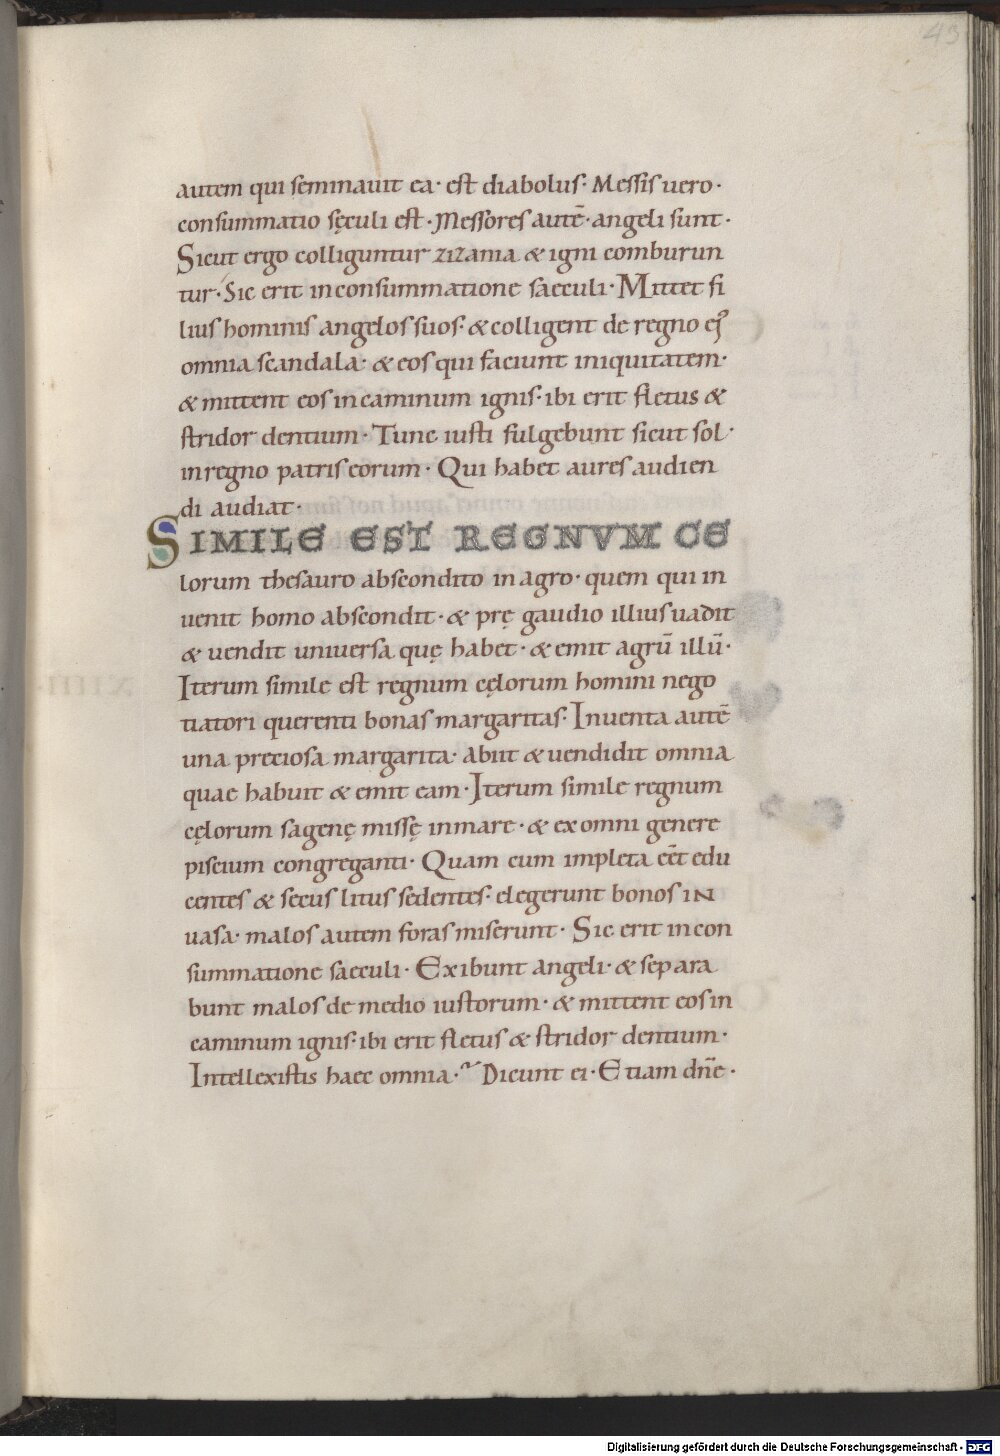 43
autem qui seminauit ea· est diabolus· Messis uero·
consummatio sęculi est· Messores autē· angeli sunt·
Sicut ergo colliguntur zizania & igni comburun
tur· Sic erit inconsummatione saeculi· Mittet fi
lius hominis angelos suos· & colligent de regno eiꝰ
omnia scandala· & eos qui faciunt iniquitatem·
& mittent eos incaminum ignis· ibi erit fletus &
stridor dentium· Tunc iusti fulgebunt sicut sol·
inregno patris eorum· Qui habet aures audien
di audiat·
SIMILE EST REGNVM CE
lorum thesauro abscondito in agro· quem qui in
uenit homo abscondit· & prę gaudio illius uadit
& uendit uniuersa quę habet· & emit agrū illū·
Iterum simile est regnum cęlorum homini nego
tiatori querenti bonas margaritas· Inuenta autē
una preciosa margarita· abiit & uendidit omnia
quae habuit & emit eam· Iterum simile regnum
cęlorum sagenę missę inmare· & exomni genere
piscium congreganti· Quam cum impleta eēt edu
centes & secus litus sedentes· elegerunt bonos IN
uasa· malos autem foras miserunt· Sic erit incon
summatione saeculi· Exibunt angeli· & separa
bunt malos de medio iustorum· & mittent eos in
caminum ignis· ibi erit fletus & stridor dentium·
Intellexistis haec omnia·~ Dicunt ei· Etiam dn̄e·
Digitalisierung gefördert durch die Deutsche Forschungsgemeinschaft - DFG